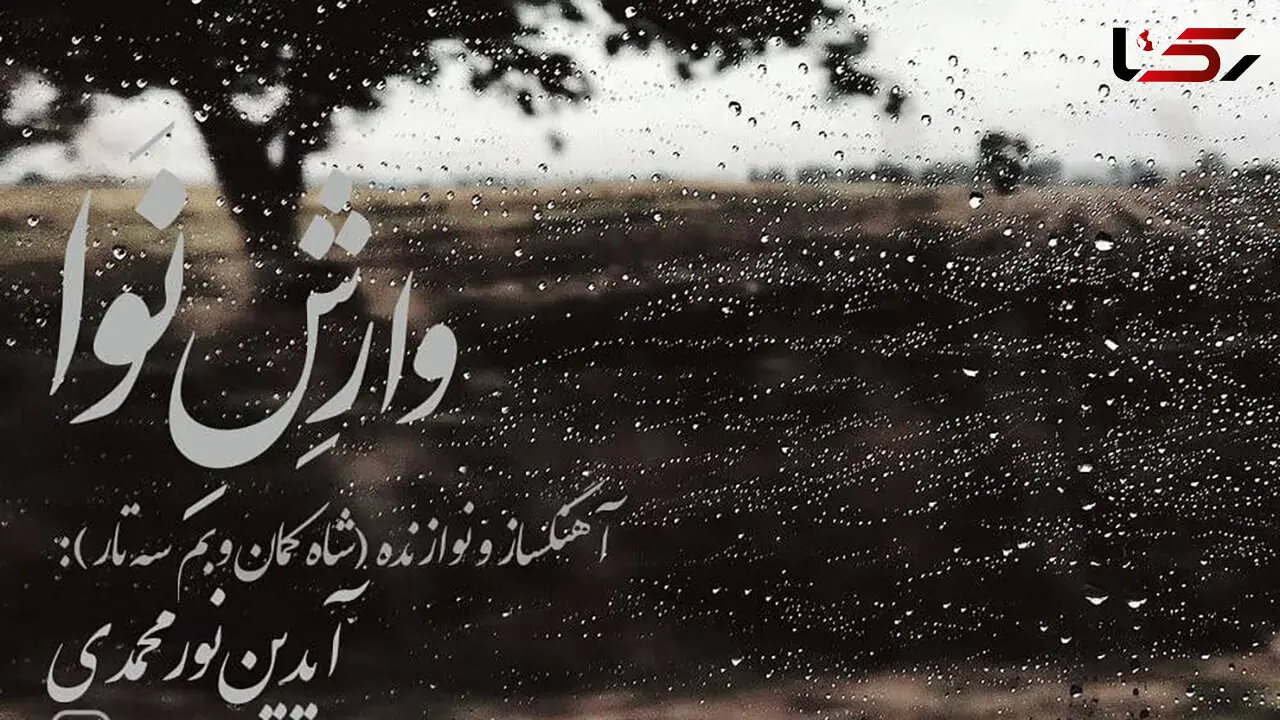 رکنا
وارِشِ نَوَا
آهنگساز و نوازنده (شاه کمان و بَم سه تار):
آیدین نورمحمدی